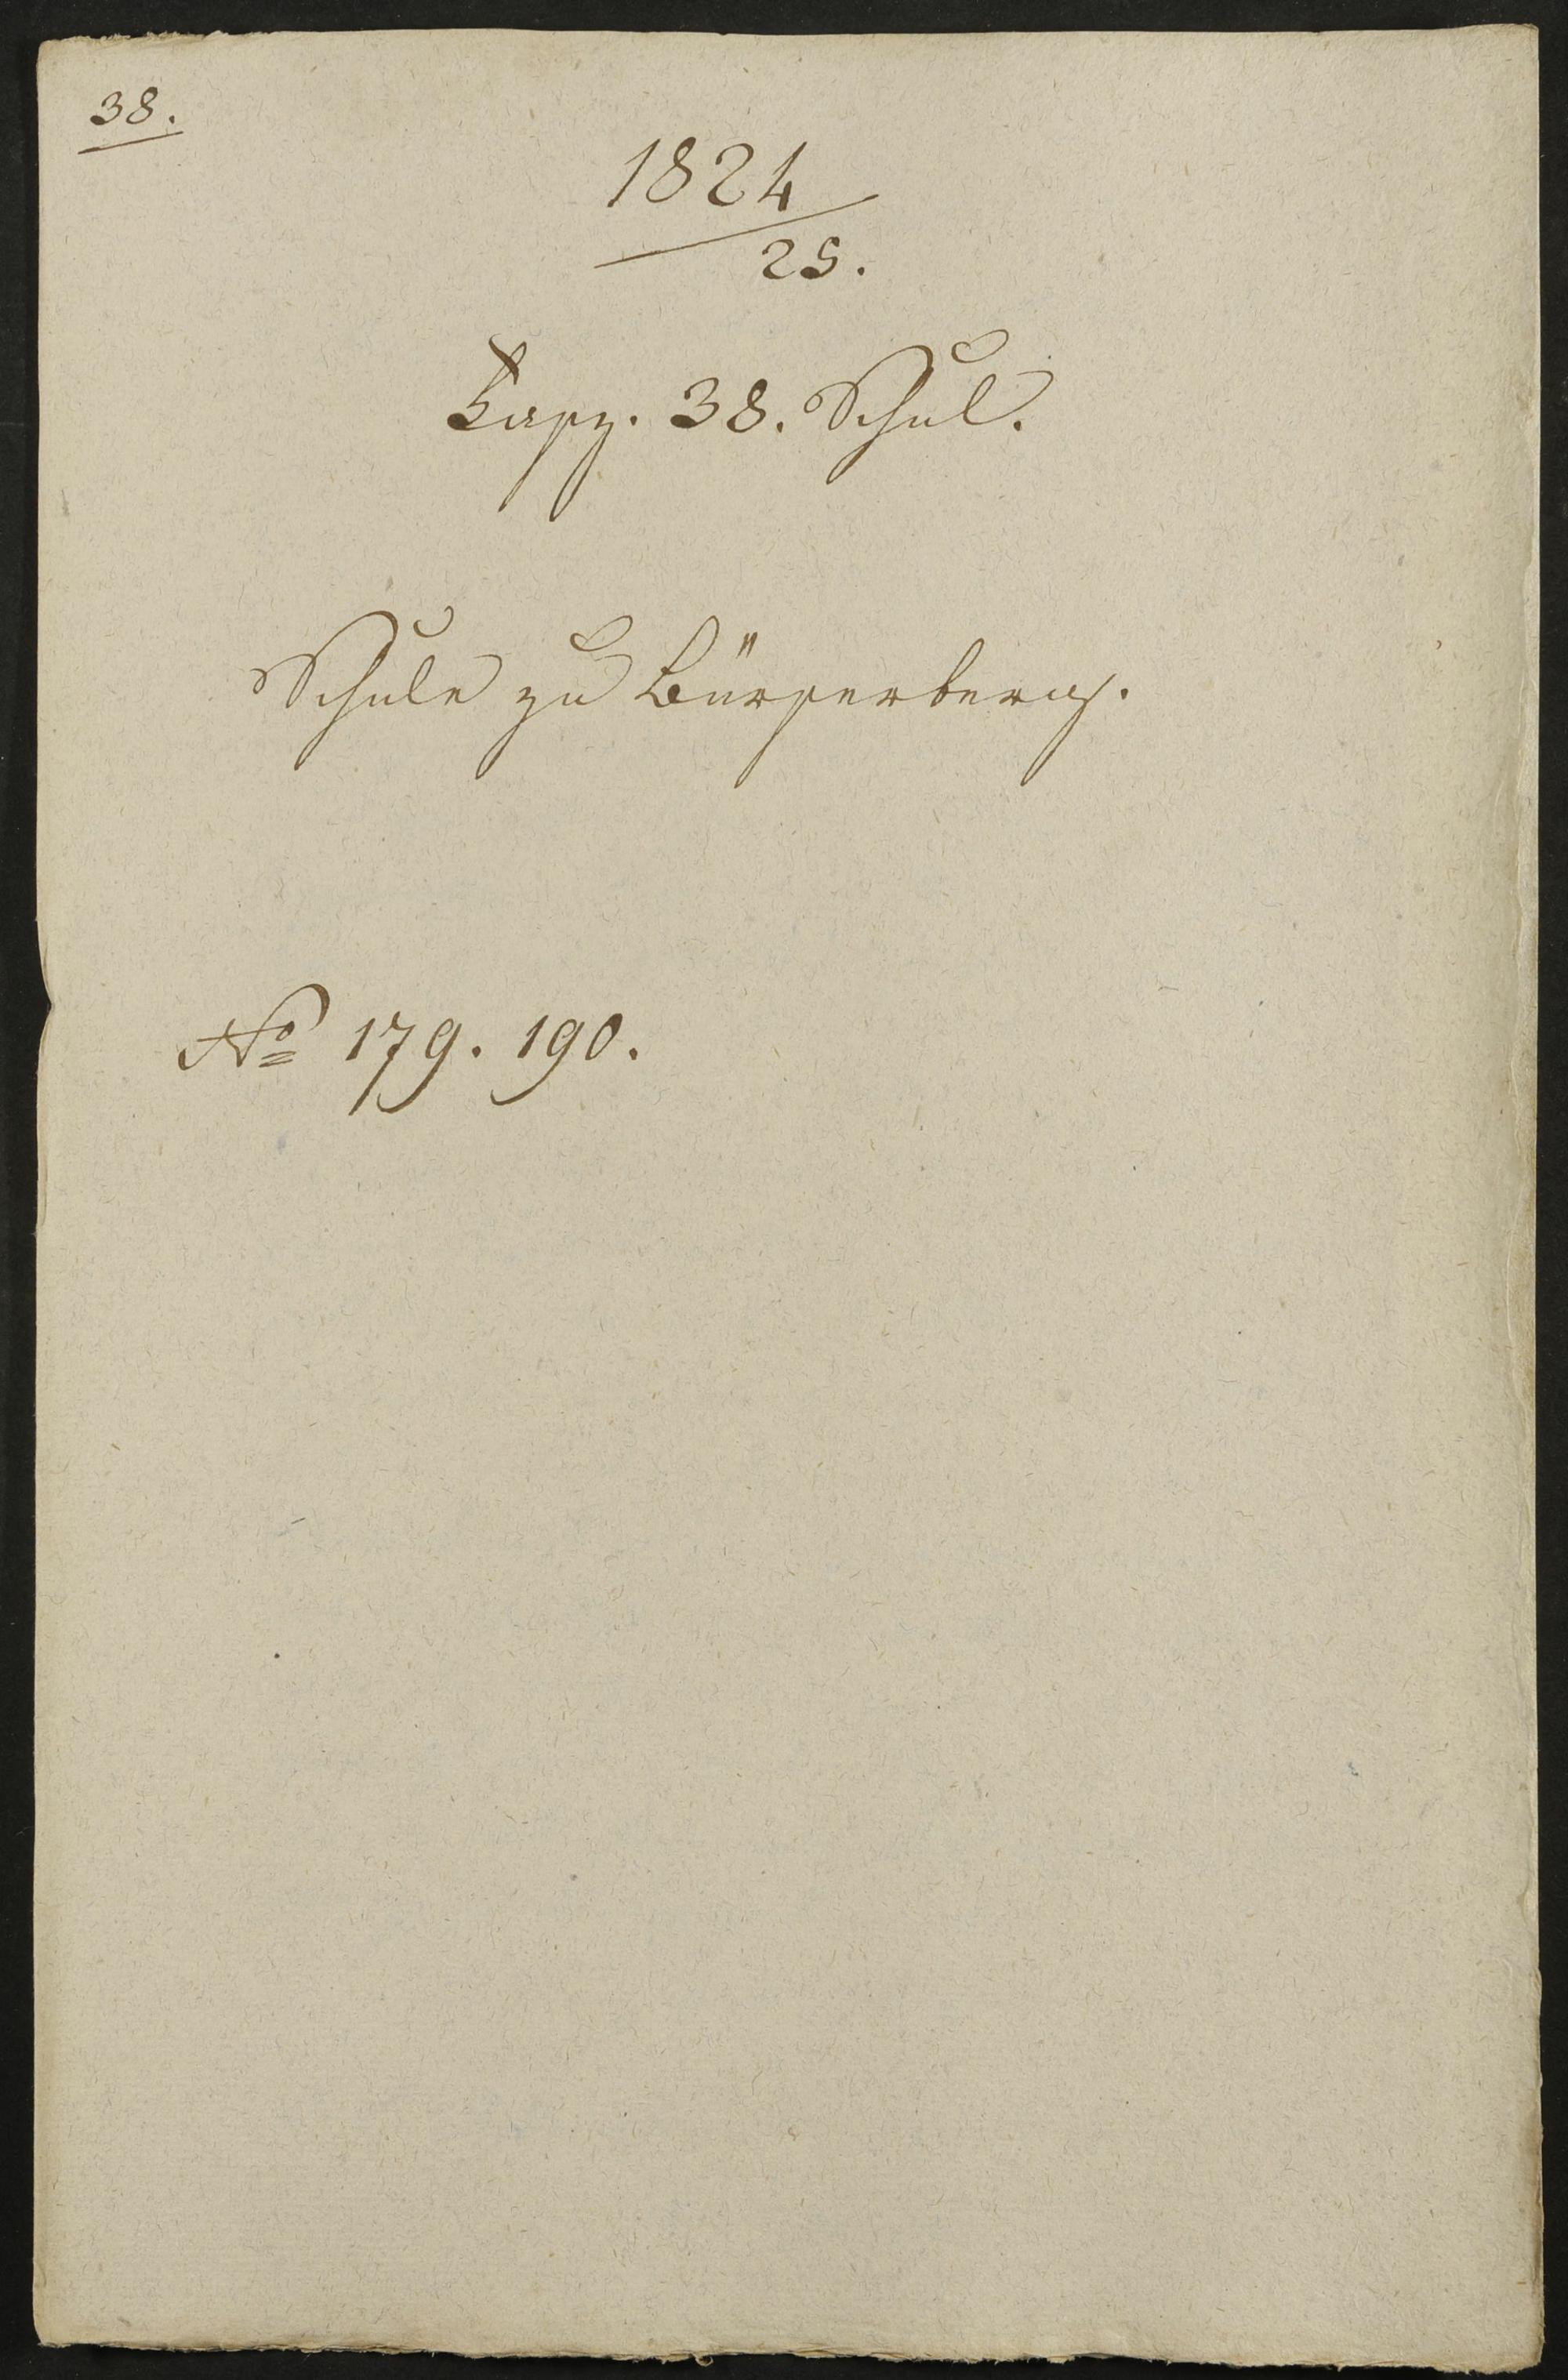 38.
1824
25.
Karz. 38. Schul.
Schule zu Bürserberg.
No 179. 190.